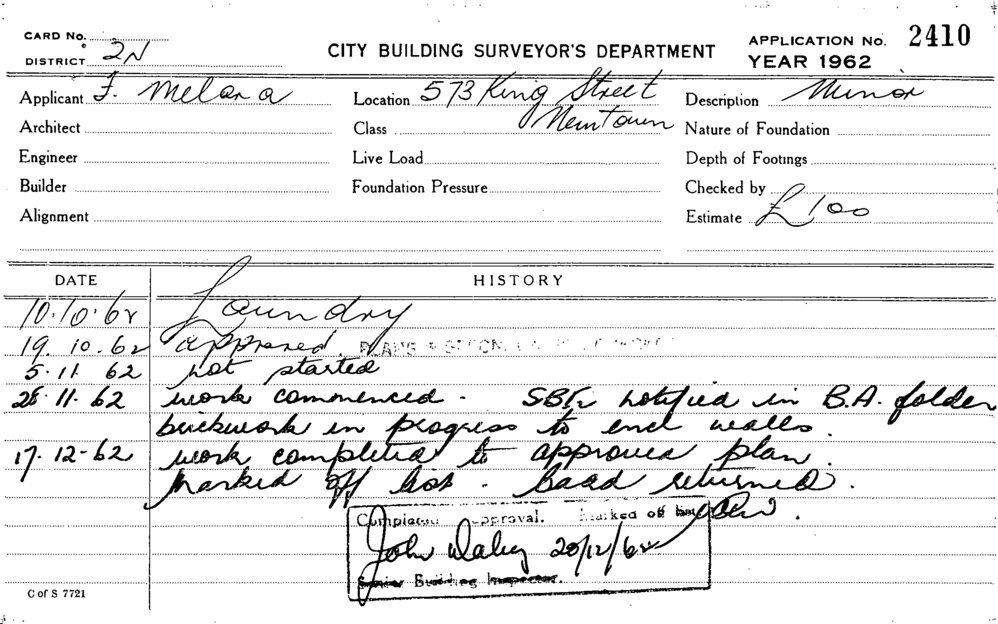 CARD No.
DISTRICT 2N
CITY BUILDING SURVEYOR'S DEPARTMENT
APPLICATION No. 2410
YEAR 1962
Applicant F. Melara
Location 573 King Street
Newtown
Description Minor
Architect
Class
Nature of Foundation
Engineer
Live Load
Depth of Footings
Builder
Foundation Pressure
Checked by
Alignment
Estimate £100
DATE HISTORY
10.10.62 Laundry
19.10.62 approved PLANS &
5.11.62 not started
28.11.62 work commenced - notified in B.A. folder
brickwork in progress to encl walls.
17.12-62 work completed to approved plan.
marked off list - returned.
Completed approval. Marked off
John Daley 20/12/62
Senior Building Inspector.
C of S 7721